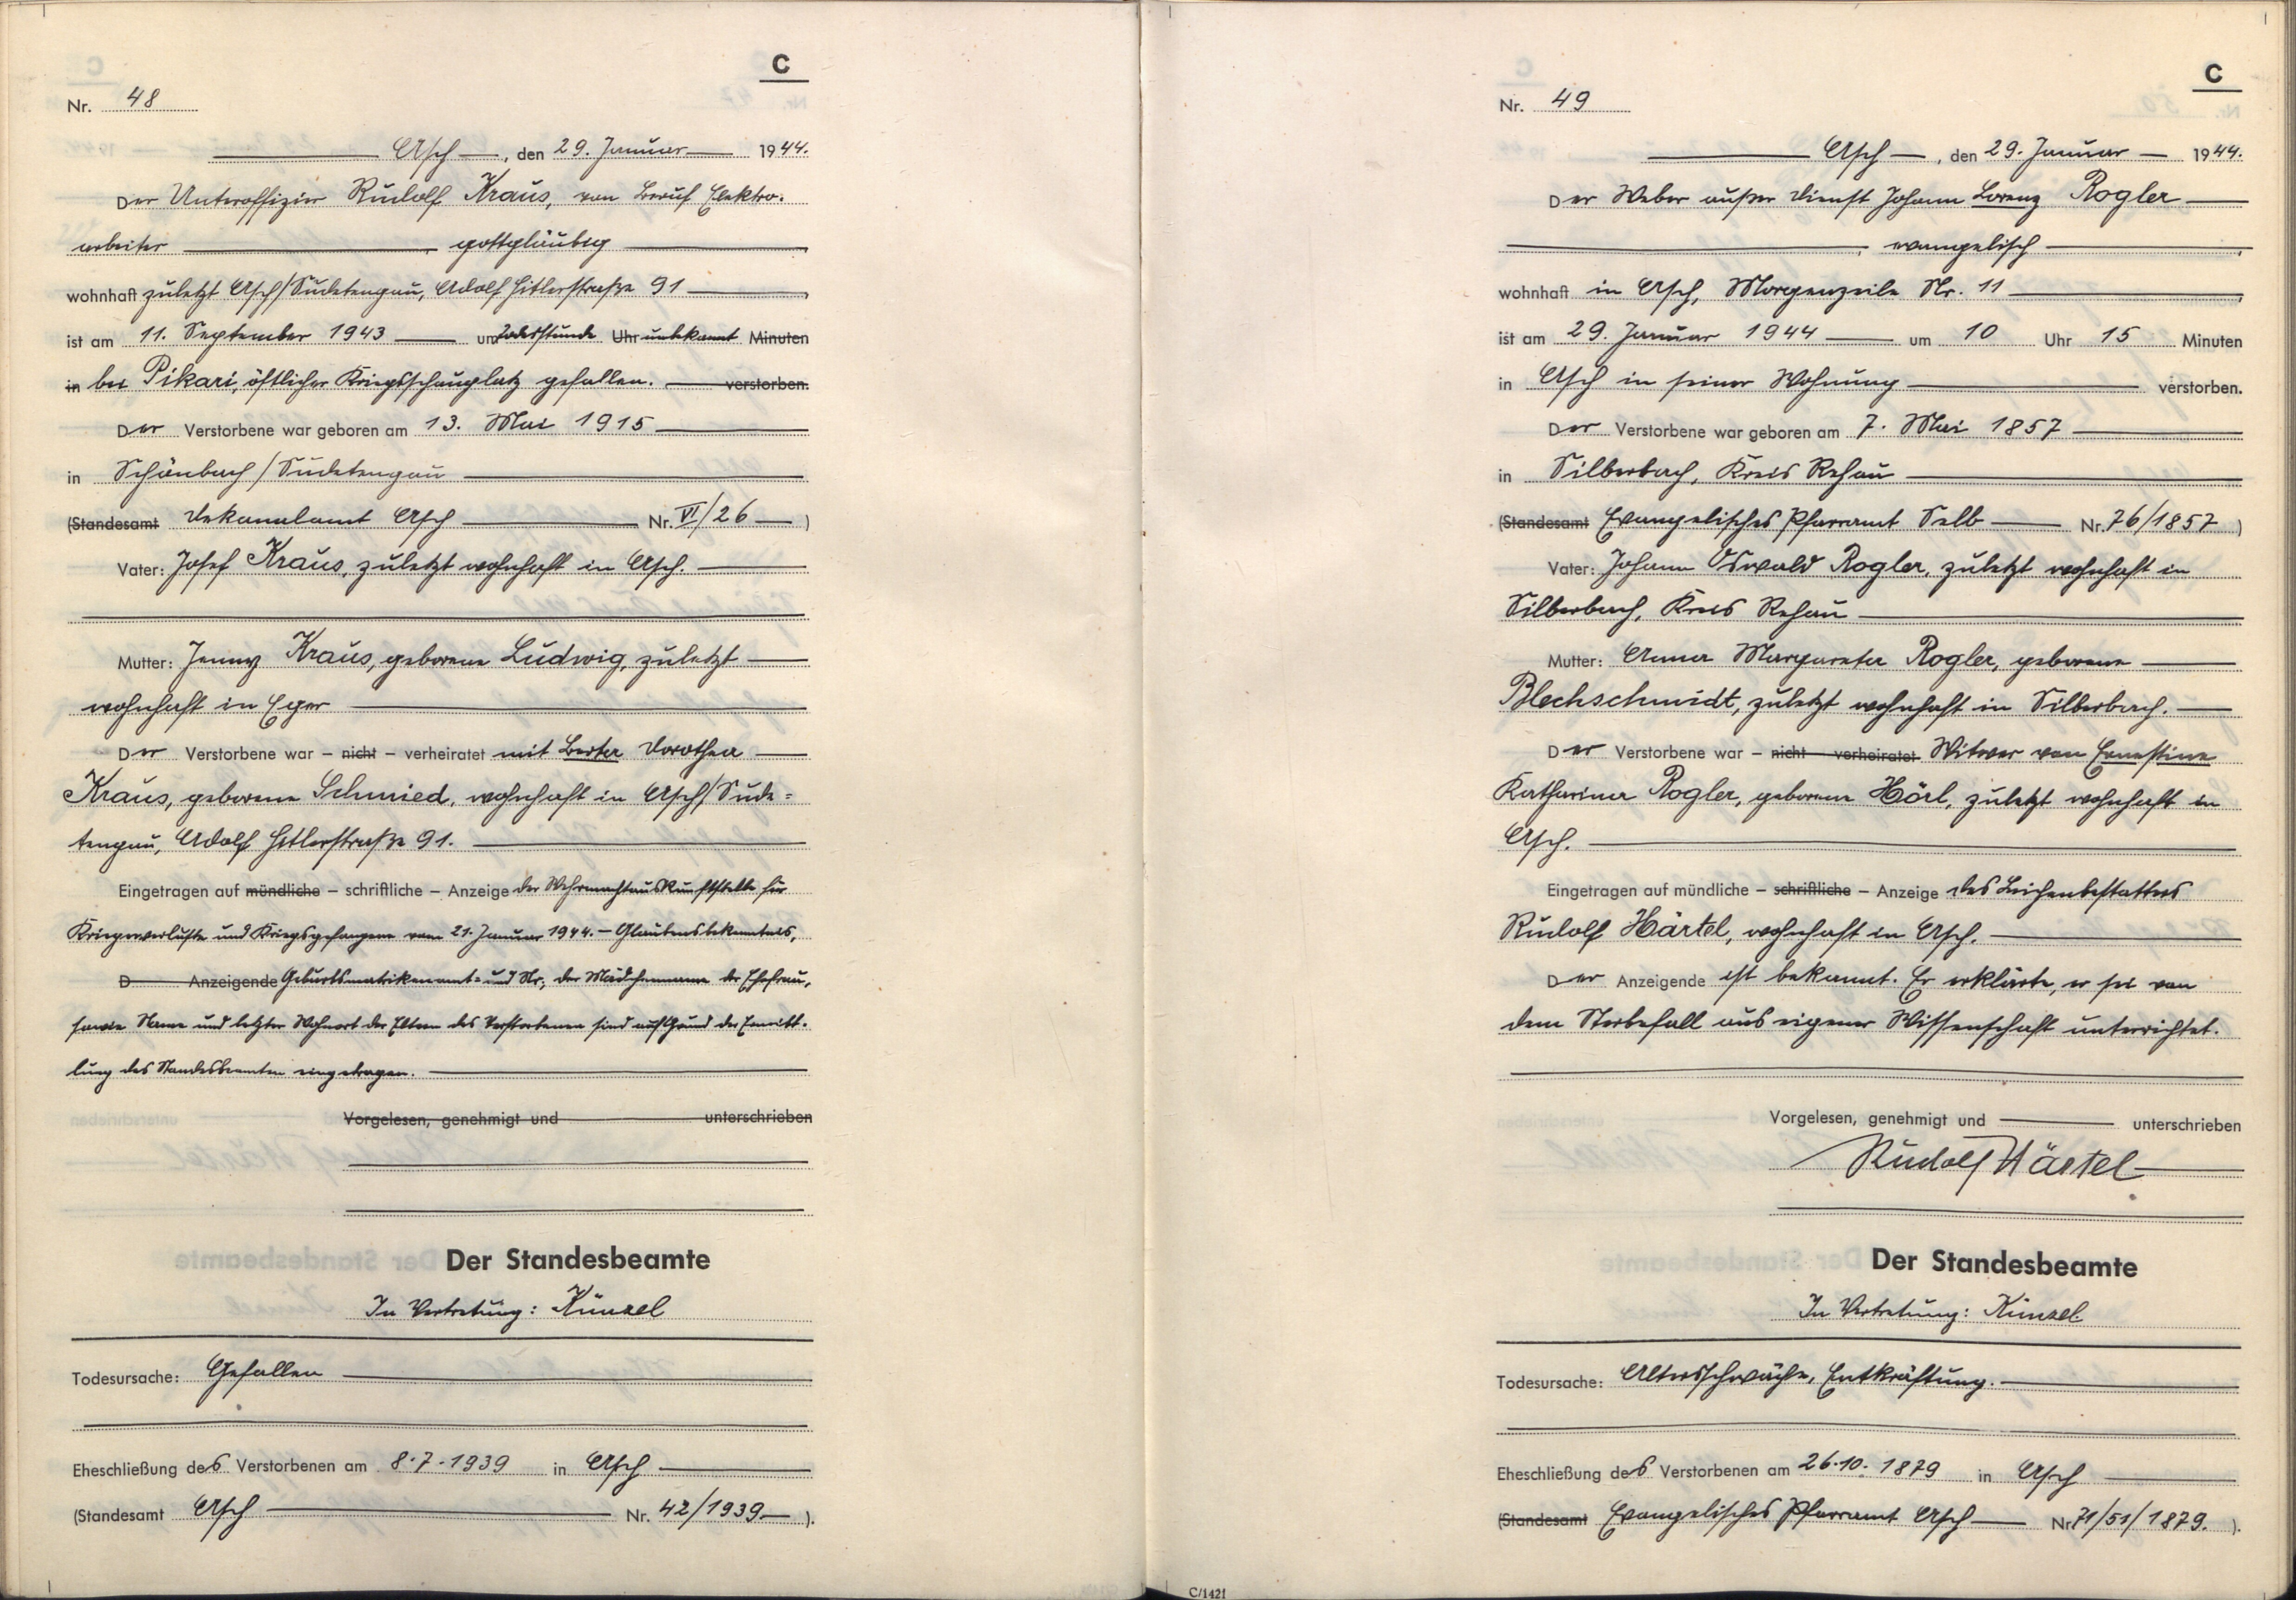 C
Nr. 48
Asch, den 29. Januar 1944.
Der Unteroffizier Rudolf Kraus, von Beruf Elektro-
arbeiter, gottgläubig,
wohnhaft zuletzt Asch/Sudetengau, Adolf Hitlerstraße 91,
ist am 11. September 1943 um Todesstunde Uhr unbekannt Minuten
in bei Pikari, östlicher Kriegsschauplatz gefallen. verstorben.
Der Verstorbene war geboren am 13. Mai 1915
in Schönbach/Sudetengau
(Standesamt Dekanalamt Asch Nr. VI/26)
Vater: Josef Kraus, zuletzt wohnhaft in Asch.
Mutter: Jenny Kraus, geborene Ludwig, zuletzt
wohnhaft in Eger
Der Verstorbene war – nicht – verheiratet mit Berta Dorothea
Kraus, geborene Schmied, wohnhaft in Asch/Sude=
tengau, Adolf Hitlerstraße 91.
Eingetragen auf mündliche – schriftliche – Anzeige der Wehrmachtauskunftstelle für
Kriegerverluste und Kriegsgefangene vom 21. Januar 1944. – Glaubensbekenntnis,
D Anzeigende Geburtsmatrikenamt= und Nr., der Mädchenname der Ehefrau,
sowie Name und letzter Wohnort der Eltern des Verstorbenen sind auf Grund der Ermitt-
lung des Standesbeamten eingetragen.
Vorgelesen, genehmigt und unterschrieben
Der Standesbeamte
In Vertretung: Künzel
Todesursache: Gefallen
Eheschließung des Verstorbenen am 8.7.1939 in Asch
(Standesamt Asch Nr. 42/1939).
C
Nr. 49
Asch, den 29. Januar 1944.
Der Weber außer Dienst Johann Lorenz Rogler
, evangelisch,
wohnhaft in Asch, Morgenzeile Nr. 11,
ist am 29. Januar 1944 um 10 Uhr 15 Minuten
in Asch in seiner Wohnung verstorben.
Der Verstorbene war geboren am 7. Mai 1857
in Silberbach, Kreis Rehau
(Standesamt Evangelisches Pfarramt Selb Nr. 76/1857)
Vater: Johann Oswald Rogler, zuletzt wohnhaft in
Silberbach, Kreis Rehau
Mutter: Anna Margareta Rogler, geborene
Blechschmidt, zuletzt wohnhaft in Silberbach.
Der Verstorbene war – nicht – verheiratet Witwer von Ernestine
Katharina Rogler, geborene Hörl, zuletzt wohnhaft in
Asch.
Eingetragen auf mündliche – schriftliche – Anzeige des Leichenbestatters
Rudolf Härtel, wohnhaft in Asch.
Der Anzeigende ist bekannt. Er erklärte, er sei von
dem Sterbefall aus eigener Wissenschaft unterrichtet.
Vorgelesen, genehmigt und unterschrieben
Rudolf Härtel
Der Standesbeamte
In Vertretung: Künzel.
Todesursache: Altersschwäche, Entkräftung.
Eheschließung des Verstorbenen am 26.10.1879 in Asch
(Standesamt Evangelisches Pfarramt Asch Nr. 71/51/1879.).
C/1421